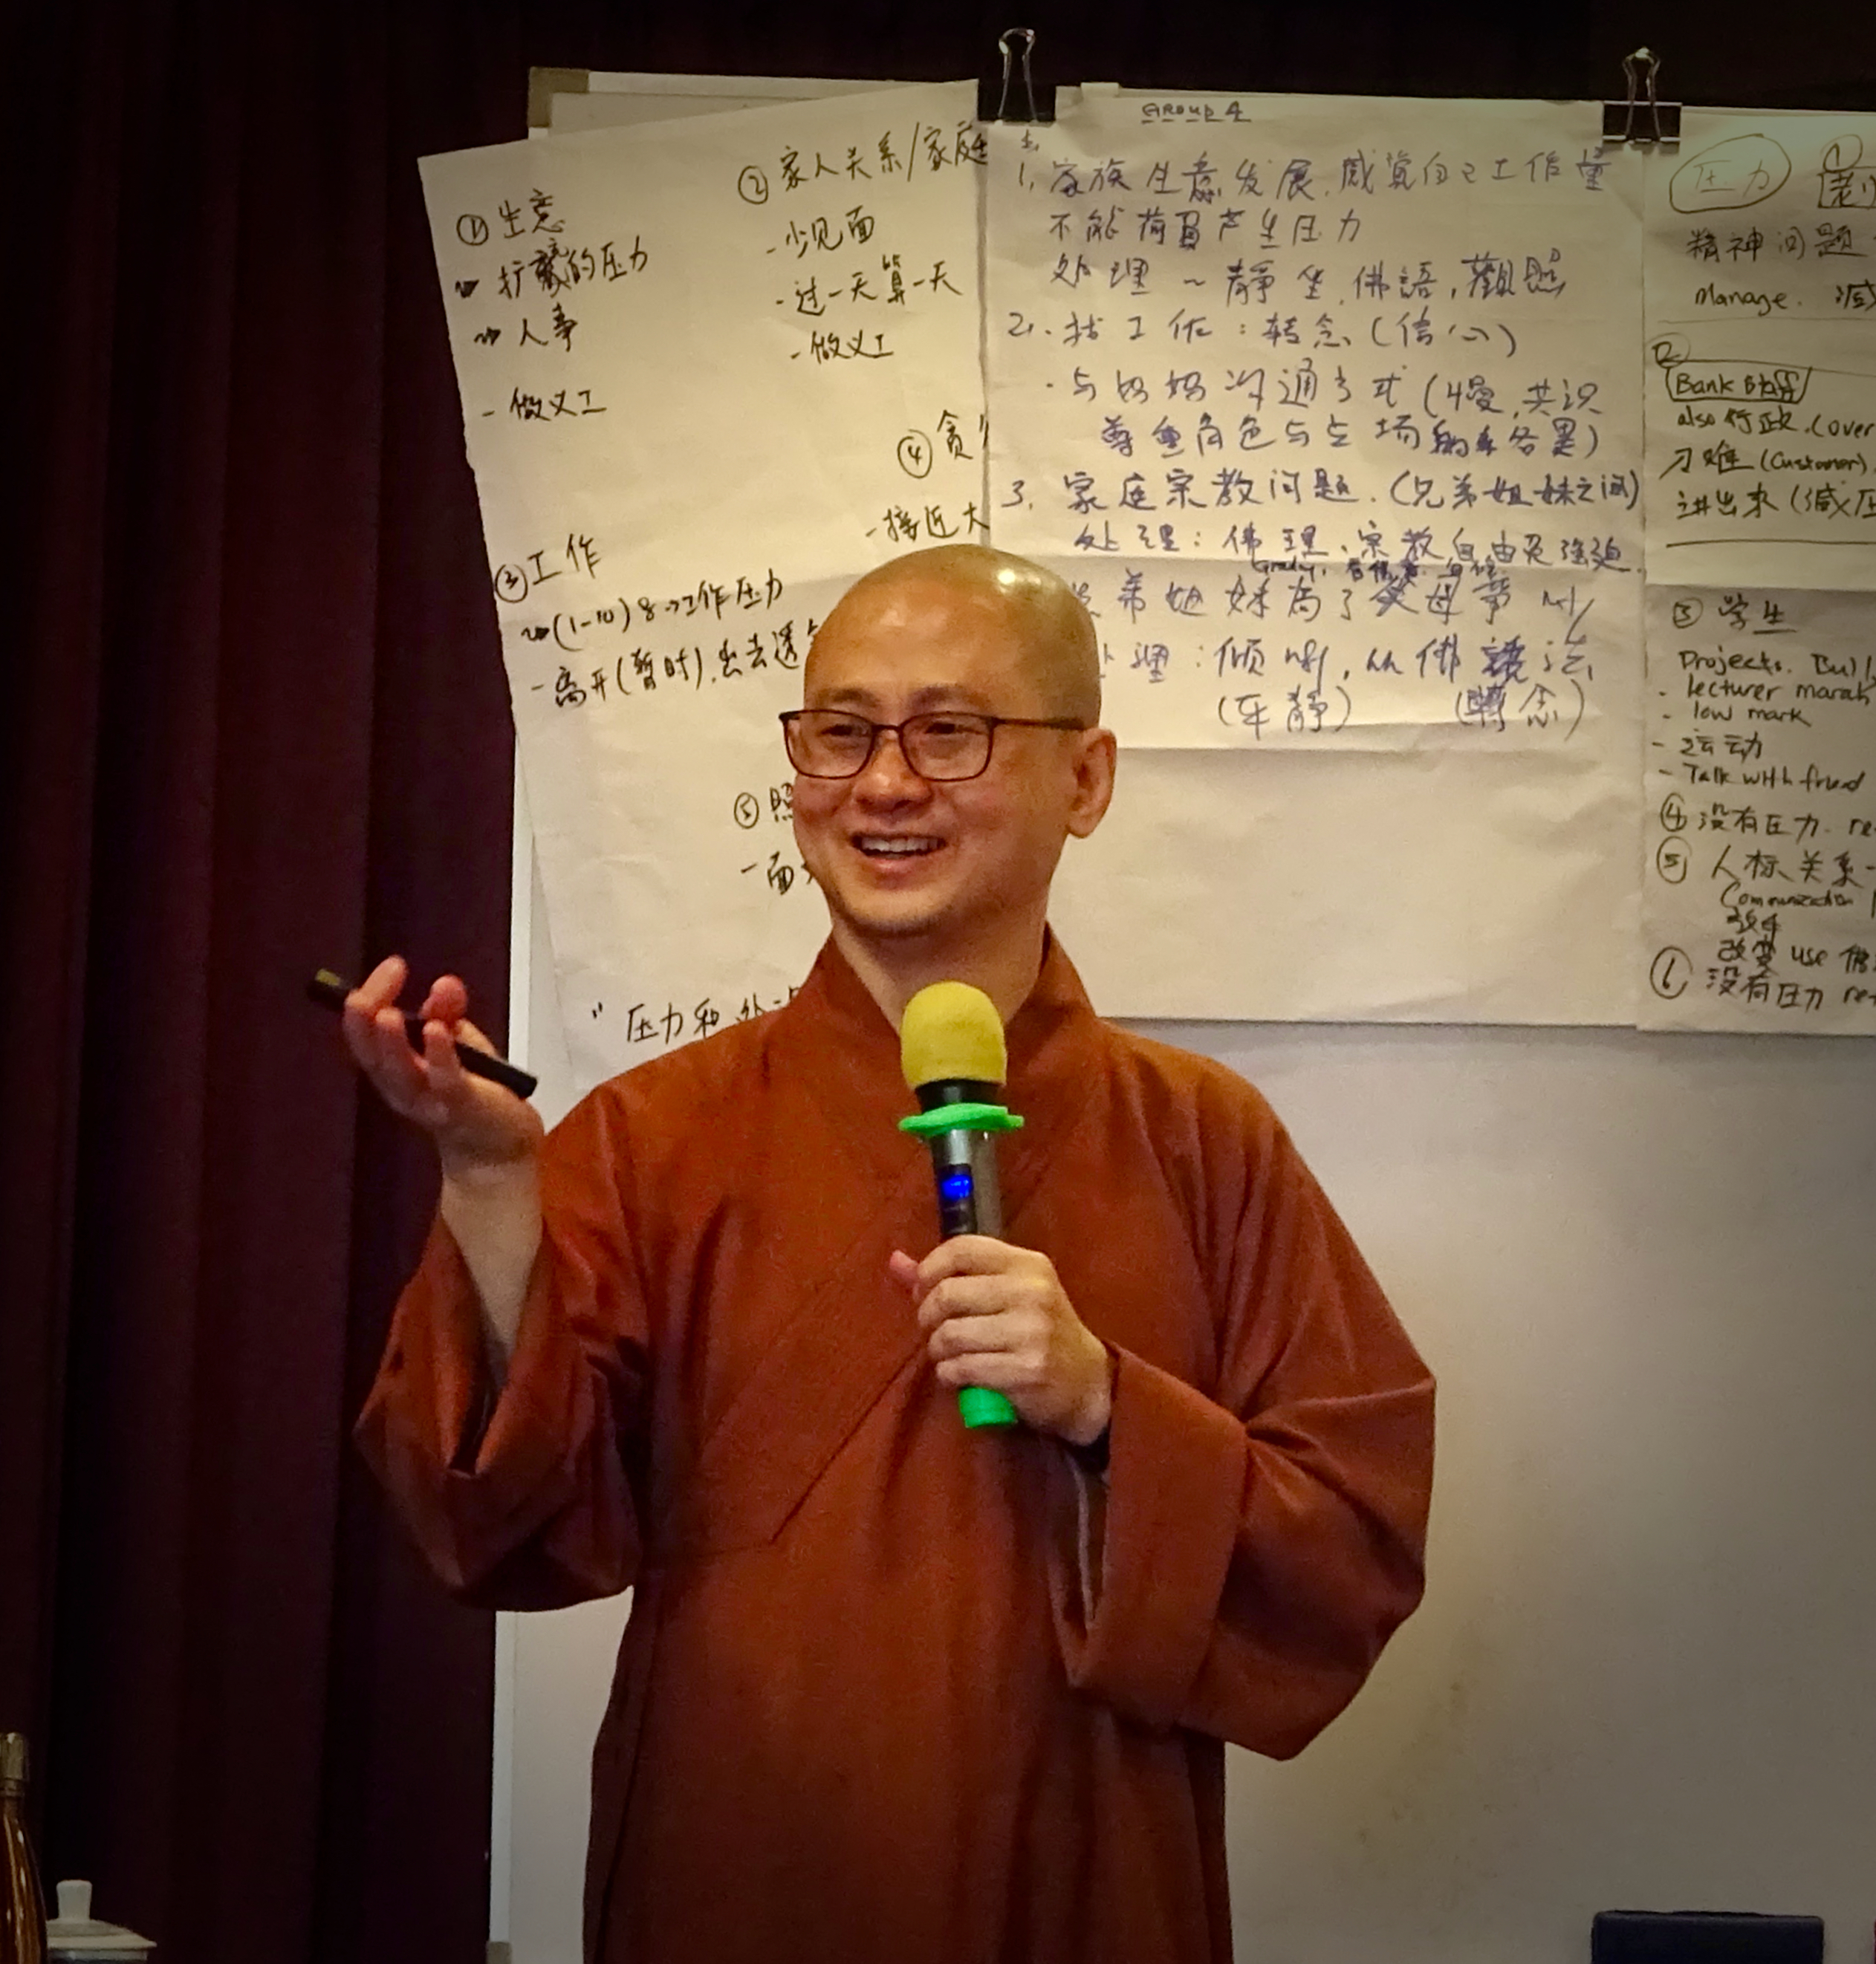 ① 生意
扩展的压力
人事
- 做义工
② 家人关系/家庭
- 少见面
- 过一天算一天
- 做义工
③ 工作
(1-10) 8 →工作压力
- 离开(暂时).出去透
④ 贪
- 接近大
⑤ 照
- 面
" 压力和处
GROUP 4
1. 家族生意发展,感觉自己工作量
不能荷負产生压力
处理 ~ 靜坐,佛語,觀照
2. 找工作:转念(信心)
· 与妈妈沟通方式(慢,共识
尊重角色与立场的各異)
3. 家庭宗教问题.(兄弟姐妹之间)
处理:佛理、宗教自由
弟姐妹为了父母
理:倾听,从佛
(静) (轉念)
压力 ①
精神问题
Manage. 减
②
Bank Staff
also 行政.(over
刁难 (Customer)
讲出来 (减压
③ 学生
Projects. Bull
- lecturer marah
- low mark
- 运动
- Talk with friend
④ 没有压力. re
⑤ 人际关系 -
Communication
改变 use 佛
⑥ 没有压力 re